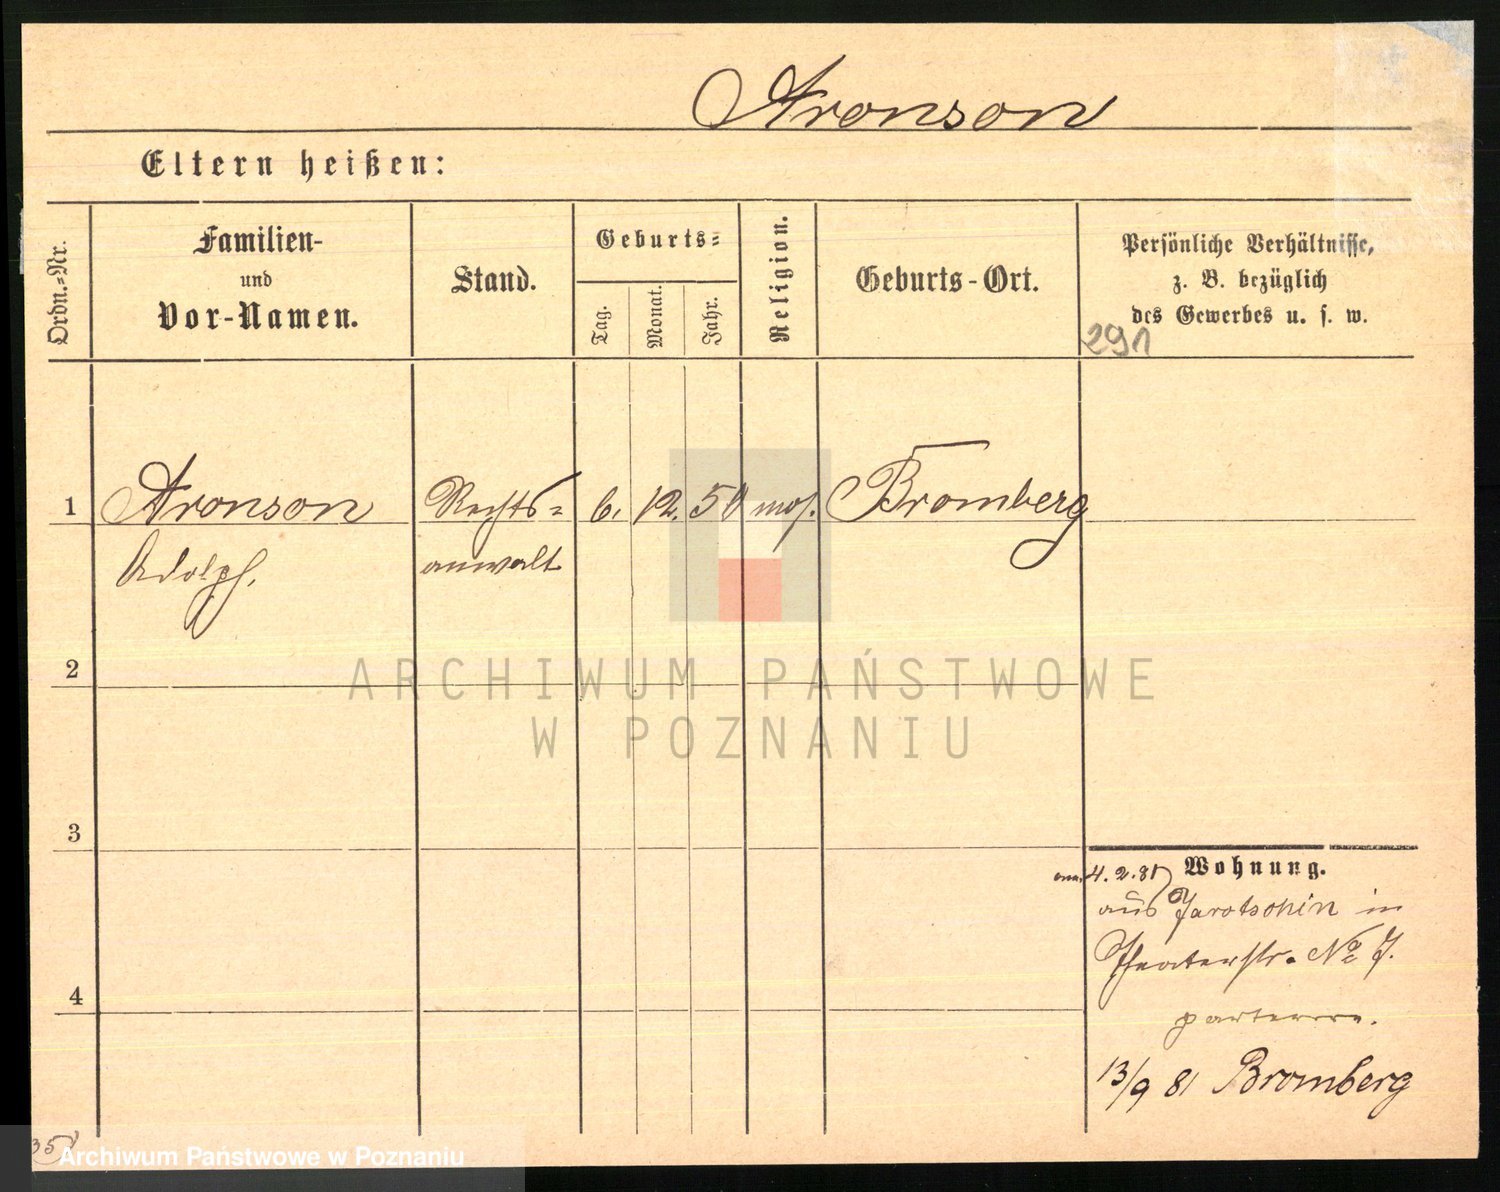 Aronson
Eltern heißen:
Ordn.-Nr.
Familien-
und
Vor-Namen.
Stand.
Geburts-
Tag.
Monat.
Jahr.
Religion.
Geburts-Ort.
Persönliche Verhältnisse,
z. B. bezüglich
des Gewerbes u. s. w.
291
1
Aronson
Adolph.
Rechts=
anwalt
6.
12.
50
mos.
Bromberg
2
ARCHIWUM PAŃSTWOWE
W POZNANIU
3
Wohnung.
4.2.81
aus Jarotschin in
Theaterstr. No 7.
parterre.
4
13/9 81 Bromberg
35
Archiwum Państwowe w Poznaniu